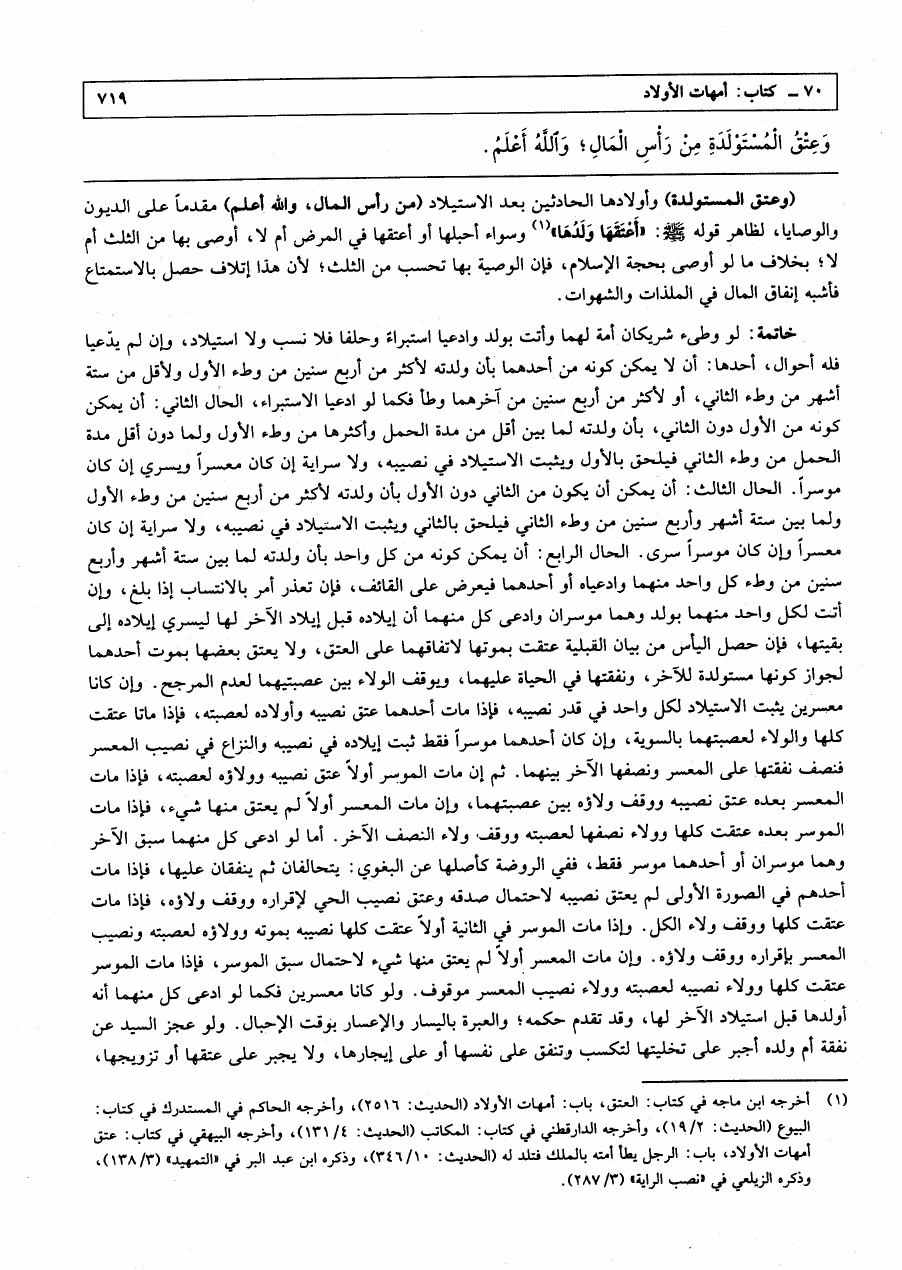 ٧٠ ـ كتاب: أمهات الأولاد
٧١٩
وَعِتْقُ الْمُسْتَوْلَدَةِ مِنْ رَأْسِ الْمَالِ؛ وَاللَّهُ أَعْلَمُ.
(وعتق المستولدة) وأولادها الحادثين بعد الاستيلاد (من رأس المال، والله أعلم) مقدماً على الديون
والوصايا، لظاهر قوله ﷺ: «أَعْتَقَهَا وَلَدُهَا»(١) وسواء أحبلها أو أعتقها في المرض أم لا، أوصى بها من الثلث أم
لا؛ بخلاف ما لو أوصى بحجة الإسلام، فإن الوصية بها تحسب من الثلث؛ لأن هذا إتلاف حصل بالاستمتاع
فأشبه إنفاق المال في الملذات والشهوات.
خاتمة: لو وطىء شريكان أمة لهما وأتت بولد وادعيا استبراءً وحلفا فلا نسب ولا استيلاد، وإن لم يدّعيا
فله أحوال، أحدها: أن لا يمكن كونه من أحدهما بأن ولدته لأكثر من أربع سنين من وطء الأول ولأقل من ستة
أشهر من وطء الثاني، أو لأكثر من أربع سنين من آخرهما وطأ فكما لو ادعيا الاستبراء، الحال الثاني: أن يمكن
كونه من الأول دون الثاني، بأن ولدته لما بين أقل من مدة الحمل وأكثرها من وطء الأول ولما دون أقل مدة
الحمل من وطء الثاني فيلحق بالأول ويثبت الاستيلاد في نصيبه، ولا سراية إن كان معسراً ويسري إن كان
موسراً. الحال الثالث: أن يمكن أن يكون من الثاني دون الأول بأن ولدته لأكثر من أربع سنين من وطء الأول
ولما بين ستة أشهر وأربع سنين من وطء الثاني فيلحق بالثاني ويثبت الاستيلاد في نصيبه، ولا سراية إن كان
معسراً وإن كان موسراً سرى. الحال الرابع: أن يمكن كونه من كل واحد بأن ولدته لما بين ستة أشهر وأربع
سنين من وطء كل واحد منهما وادعياه أو أحدهما فيعرض على القائف، فإن تعذر أمر بالانتساب إذا بلغ، وإن
أتت لكل واحد منهما بولد وهما موسران وادعى كل منهما أن إيلاده قبل إيلاد الآخر لها ليسري إيلاده إلى
بقيتها، فإن حصل اليأس من بيان القبلية عتقت بموتها لاتفاقهما على العتق، ولا يعتق بعضها بموت أحدهما
لجواز كونها مستولدة للآخر، ونفقتها في الحياة عليهما، ويوقف الولاء بين عصبتيهما لعدم المرجح. وإن كانا
معسرين يثبت الاستيلاد لكل واحد في قدر نصيبه، فإذا مات أحدهما عتق نصيبه وأولاده لعصبته، فإذا ماتا عتقت
كلها والولاء لعصبتهما بالسوية، وإن كان أحدهما موسراً فقط ثبت إيلاده في نصيبه والنزاع في نصيب المعسر
فنصف نفقتها على المعسر ونصفها الآخر بينهما. ثم إن مات الموسر أولاً عتق نصيبه وولاؤه لعصبته، فإذا مات
المعسر بعده عتق نصيبه ووقف ولاؤه بين عصبتهما، وإن مات المعسر أولاً لم يعتق منها شيء، فإذا مات
الموسر بعده عتقت كلها وولاء نصفها لعصبته ووقف ولاء النصف الآخر. أما لو ادعى كل منهما سبق الآخر
وهما موسران أو أحدهما موسر فقط، ففي الروضة كأصلها عن البغوي: يتحالفان ثم ينفقان عليها، فإذا مات
أحدهم في الصورة الأولى لم يعتق نصيبه لاحتمال صدقه وعتق نصيب الحي لإقراره ووقف ولاؤه، فإذا مات
عتقت كلها ووقف ولاء الكل. وإذا مات الموسر في الثانية أولاً عتقت كلها نصيبه بموته وولاؤه لعصبته ونصيب
المعسر بإقراره ووقف ولاؤه. وإن مات المعسر أولاً لم يعتق منها شيء لاحتمال سبق الموسر، فإذا مات الموسر
عتقت كلها وولاء نصيبه لعصبته وولاء نصيب المعسر موقوف. ولو كانا معسرين فكما لو ادعى كل منهما أنه
أولدها قبل استيلاد الآخر لها، وقد تقدم حكمه؛ والعبرة باليسار والإعسار بوقت الإحبال. ولو عجز السيد عن
نفقة أم ولده أجبر على تخليتها لتكسب وتنفق على نفسها أو على إيجارها، ولا يجبر على عتقها أو تزويجها،
(١) أخرجه ابن ماجه في كتاب: العتق، باب: أمهات الأولاد (الحديث: ٢٥١٦)، وأخرجه الحاكم في المستدرك في كتاب:
البيوع (الحديث: ١٩/٢)، وأخرجه الدارقطني في كتاب: المكاتب (الحديث: ١٣١/٤)، وأخرجه البيهقي في كتاب: عتق
أمهات الأولاد، باب: الرجل يطأ أمته بالملك فتلد له (الحديث: ٣٤٦/١٠)، وذكره ابن عبد البر في «التمهيد» (١٣٨/٣)،
وذكره الزيلعي في «نصب الراية» (٢٨٧/٣).